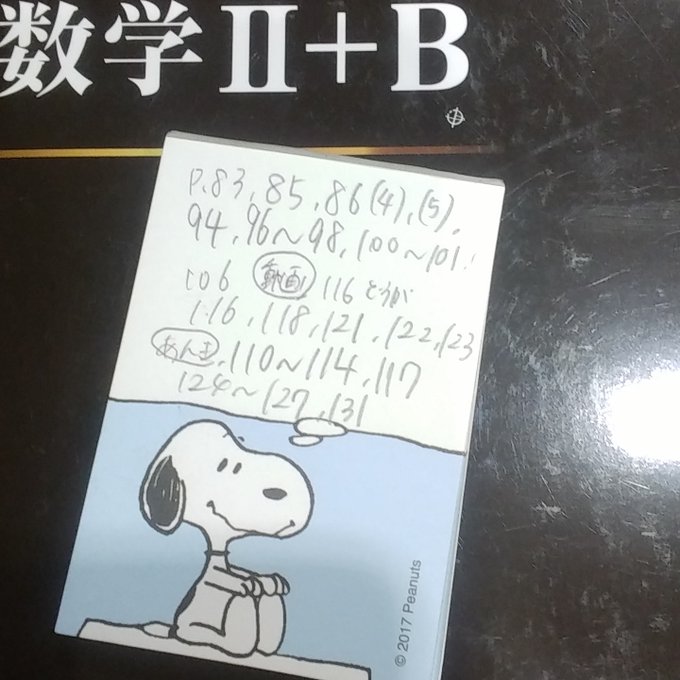 数学Ⅱ+B
P.83,85,86(4),(5),
94,96〜98,100〜101,
106 動画 116 どうが
116,118,121,122,123
あんき,110〜114,117
124〜127,131
© 2017 Peanuts